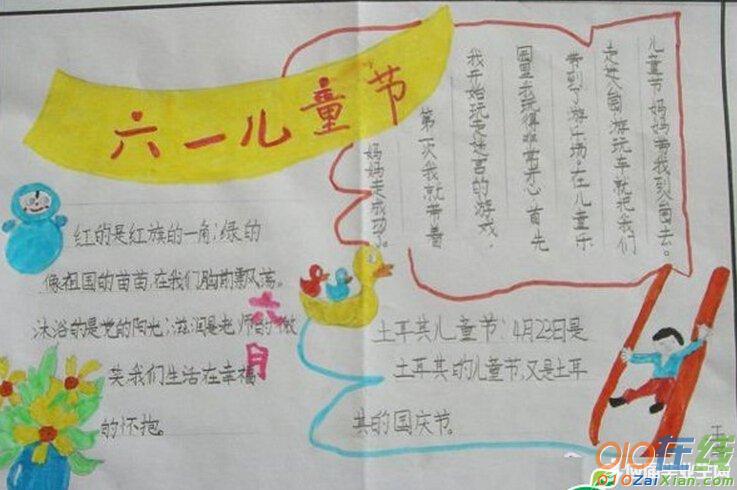 六一儿童节
儿童节妈妈带我到公园去。
走进公园游玩车就把我们
带到了游乐场。在儿童乐
园里我玩得非常开心首先
我开始玩走迷宫的游戏,
第一次我就带着
妈妈走成功了。
红的是红族的一角;绿的
像祖国的苗苗,在我们胸前飘荡。
沐浴的是党的阳光;滋润是老师的微
笑我们生活在幸福
的怀抱。
六月
土耳其儿童节:4月23日是
土耳其的儿童节,又是土耳
其的国庆节。
在线
OIOZaiXian.com